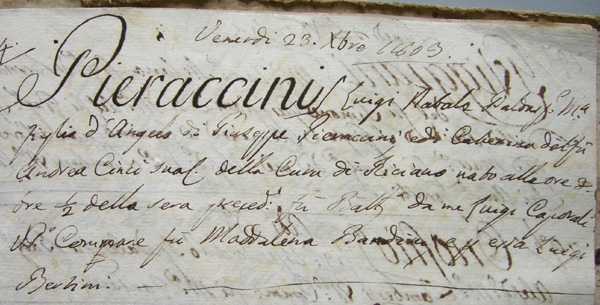 Venerdì 23. Xbre 1803.
Pieraccini Luigi Natale M.ª
figlio d'Angelo di Giuseppe Pieraccini e di Caterina del fù
Andrea Cinci della Cura di nato alle ore
ore ½ della sera preced.e fù Batt. da me Luigi Caporali
Compare fù Maddalena Bandini e p essa Luigi
Bertini.